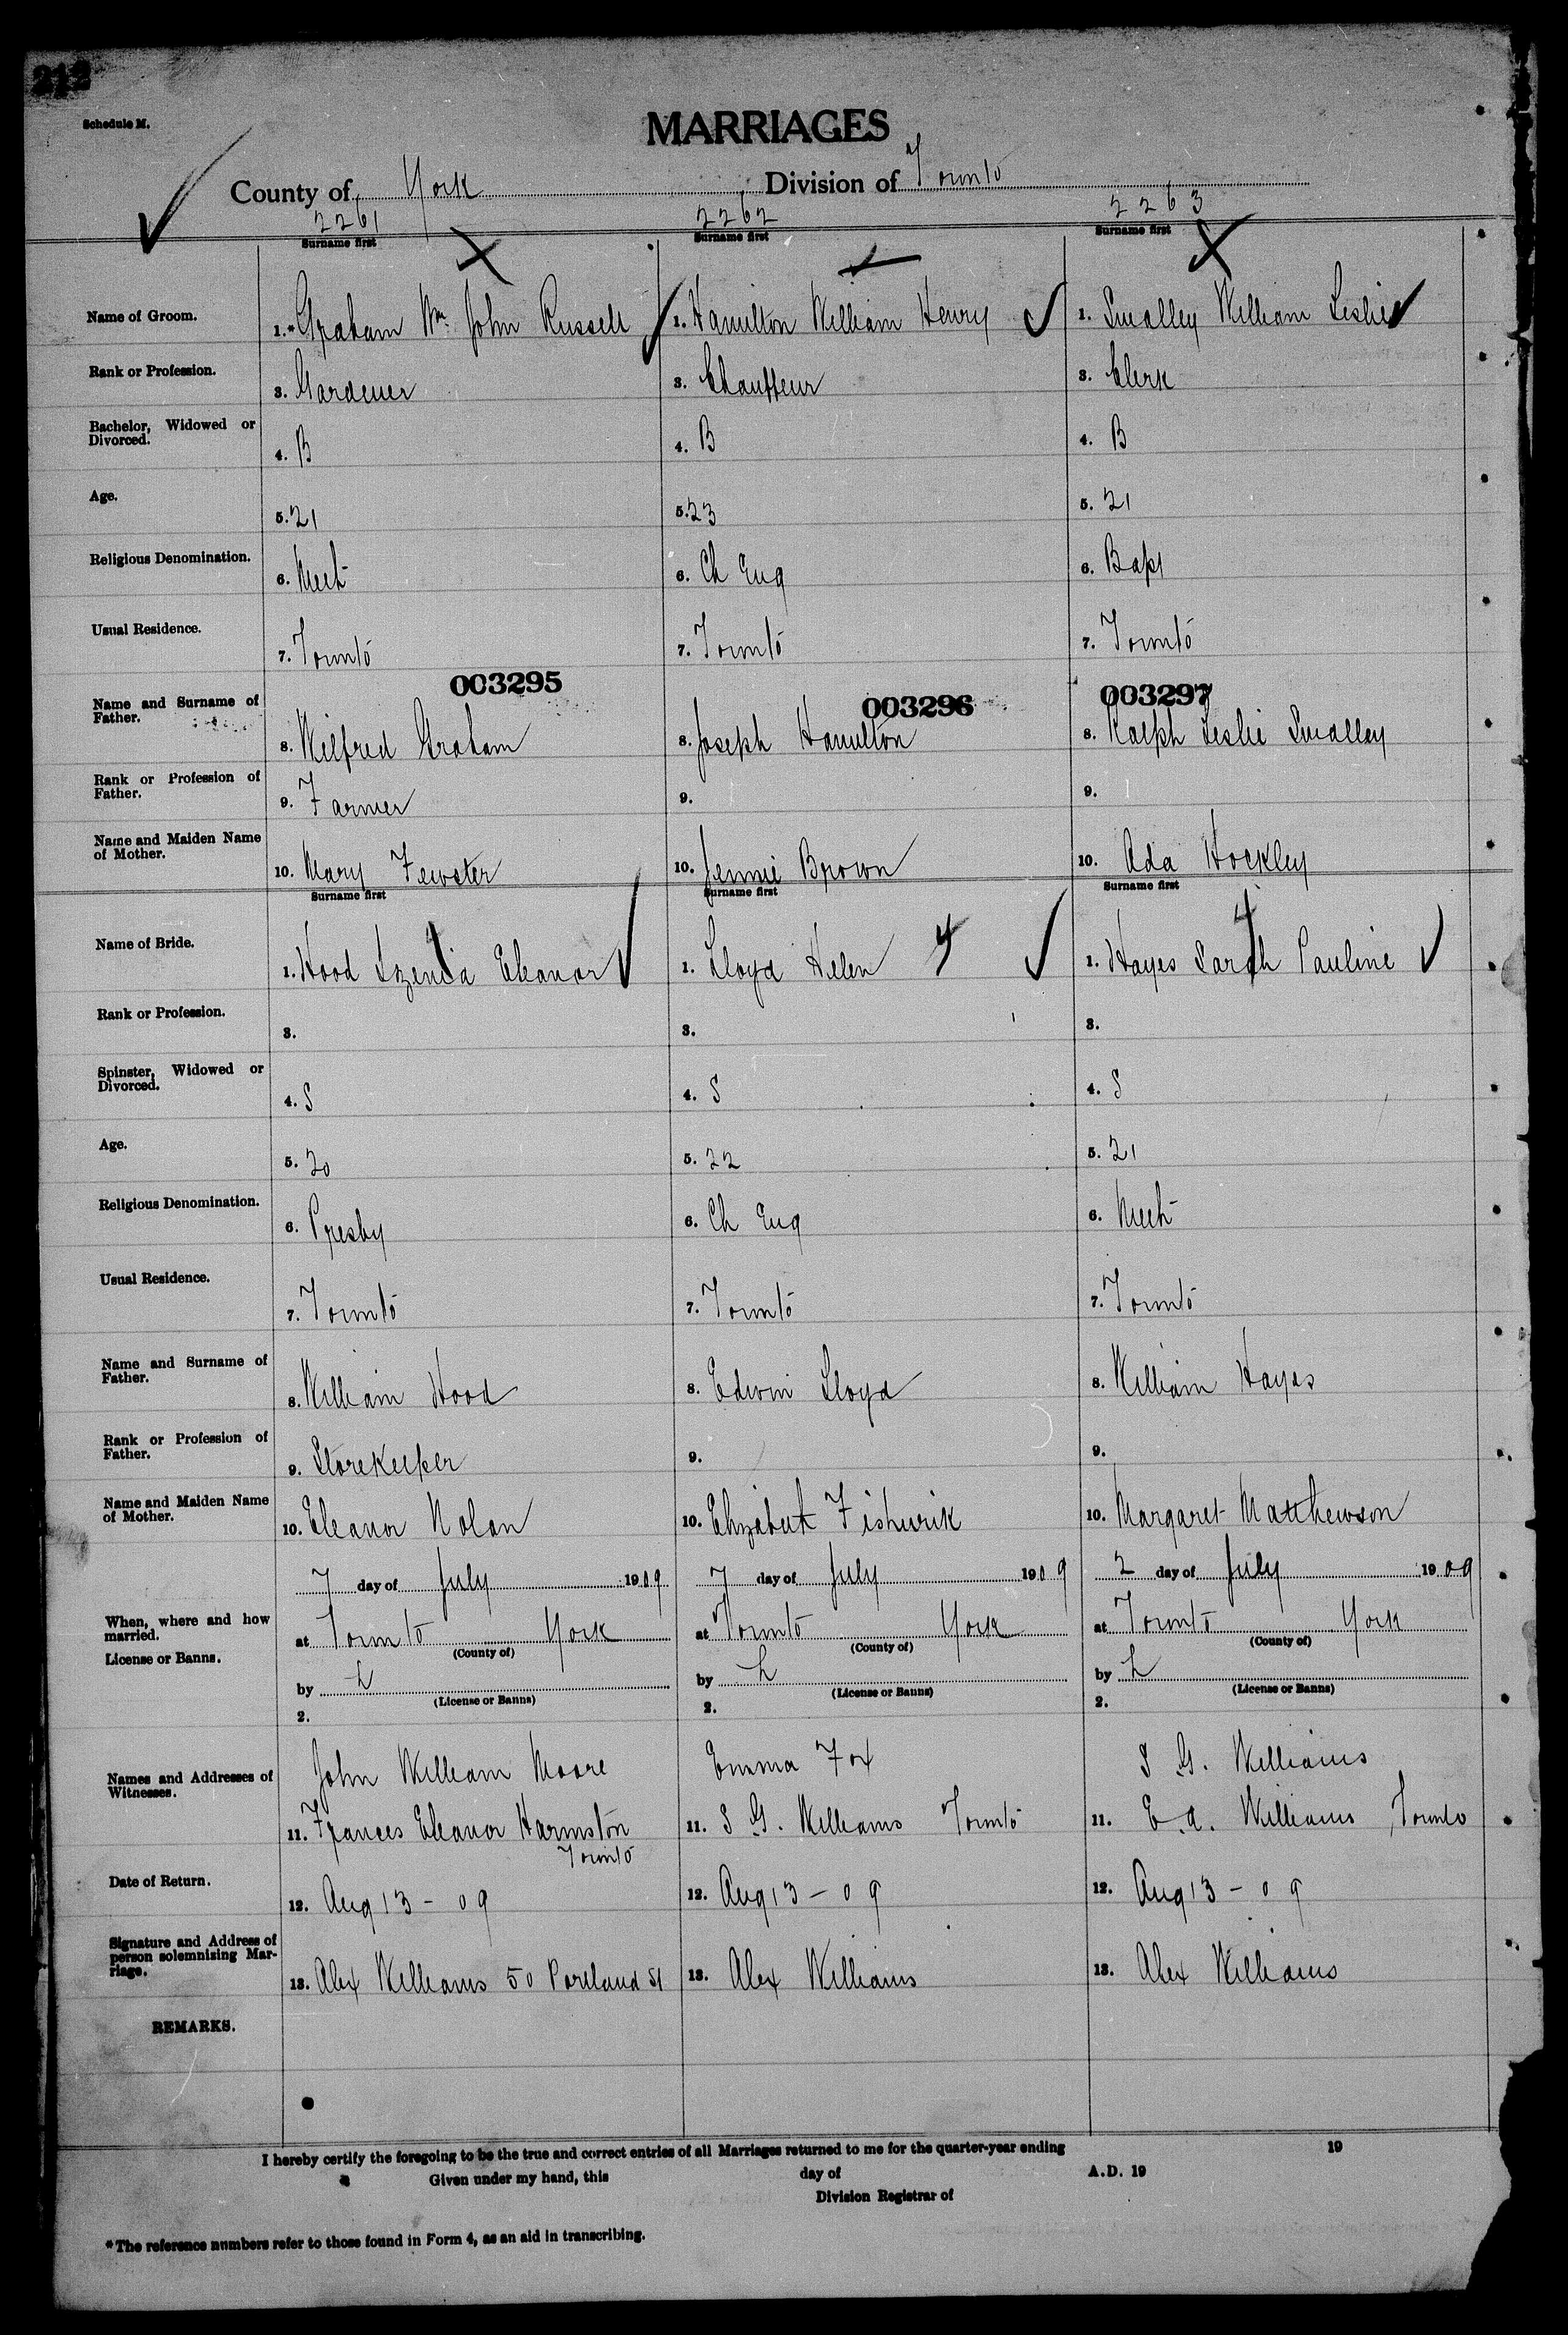 212
Schedule M.
MARRIAGES
County of York Division of Toronto
2261 2262 2263
Surname first Surname first Surname first
Name of Groom. 1.* Graham Wm. John Russell 1. Hamilton William Henry 1. Smalley William Leslie
Rank or Profession. 3. Gardener 3. Chauffeur 3. Clerk
Bachelor, Widowed or Divorced. 4. B 4. B 4. B
Age. 5. 21 5. 23 5. 21
Religious Denomination. 6. Meth 6. Ch Eng 6. Bapt
Usual Residence. 7. Toronto 7. Toronto 7. Toronto
003295 003296 003297
Name and Surname of Father. 8. Wilfred Graham 8. Joseph Hamilton 8. Ralph Leslie Smalley
Rank or Profession of Father. 9. Farmer 9. 9.
Name and Maiden Name of Mother. 10. Mary Fewster 10. Jennie Brown 10. Ada Hockley
Surname first Surname first Surname first
Name of Bride. 1. Hood Eleanor 1. Lloyd Helen 4 1. Hayes Sarah Pauline 4
Rank or Profession. 3. 3. 3.
Spinster, Widowed or Divorced. 4. S 4. S 4. S
Age. 5. 20 5. 22 5. 21
Religious Denomination. 6. Presby 6. Ch Eng 6. Meth
Usual Residence. 7. Toronto 7. Toronto 7. Toronto
Name and Surname of Father. 8. William Hood 8. Edwin Lloyd 8. William Hayes
Rank or Profession of Father. 9. Storekeeper 9. 9.
Name and Maiden Name of Mother. 10. Eleanor Nolan 10. Elizabeth Fishwick 10. Margaret Matthewson
7 day of July 1909 7 day of July 1909 2 day of July 1909
When, where and how married. at Toronto York at Toronto York at Toronto York
(County of) (County of) (County of)
License or Banns. by L by L by L
(License or Banns) (License or Banns) (License or Banns)
2. 2. 2.
Names and Addresses of Witnesses. John William Moore Emma Fox S G. Williams
11. Frances Eleanor Harmston 11. S G. Williams Toronto 11. E. A. Williams, Toronto
Toronto
Date of Return. 12. Aug 13 - 09 12. Aug 13 - 09 12. Aug 13 - 09
Signature and Address of person solemnizing Marriage. 13. Alex Williams 50 Portland St 13. Alex Williams 13. Alex Williams
REMARKS.
I hereby certify the foregoing to be the true and correct entries of all Marriages returned to me for the quarter-year ending 19
Given under my hand, this day of A.D. 19
Division Registrar of
*The reference numbers refer to those found in Form 4, as an aid in transcribing.